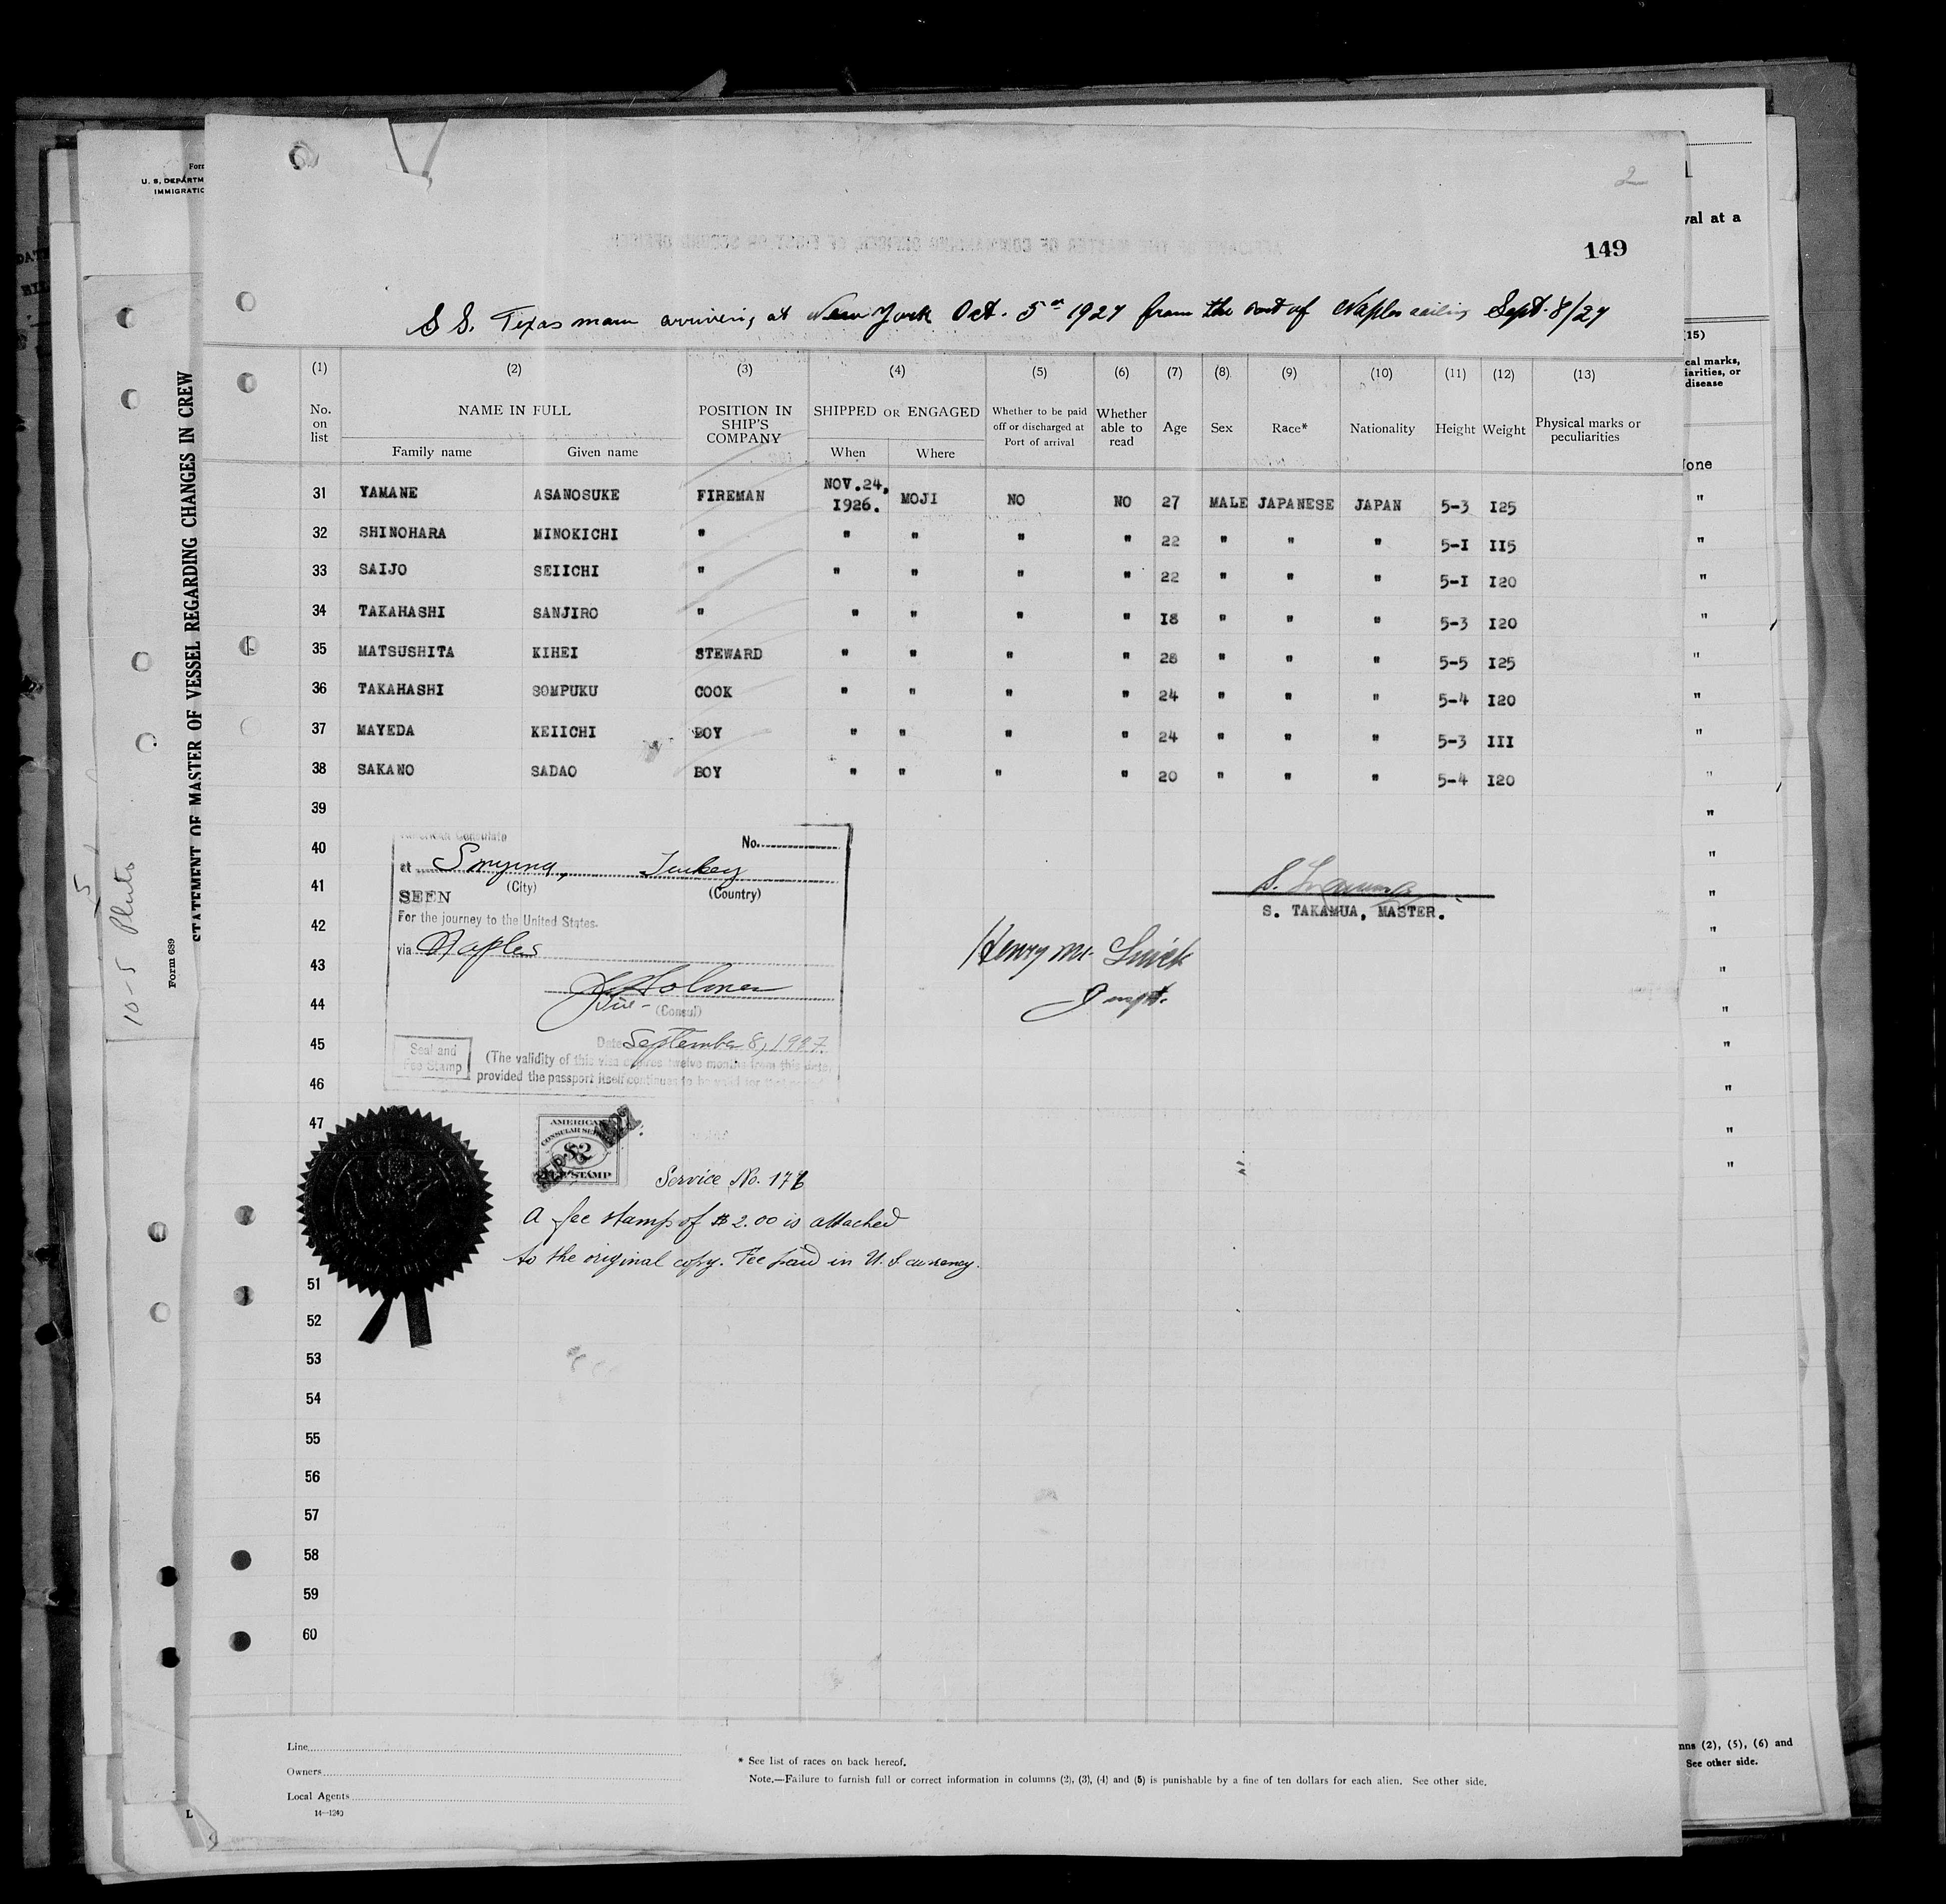 2
149
S S. Texas maru arriving at New York Oct. 5th 1927 from the port of Naples sailing Sept. 8/27
(1) (2) (3) (4) (5) (6) (7) (8) (9) (10) (11) (12) (13)
No. on list
NAME IN FULL
Family name Given name
POSITION IN SHIP'S COMPANY
SHIPPED OR ENGAGED
When Where
Whether to be paid off or discharged at Port of arrival
Whether able to read
Age Sex Race* Nationality Height Weight
Physical marks or peculiarities
31 YAMANE ASANOSUKE FIREMAN NOV.24, I926. MOJI NO NO 27 MALE JAPANESE JAPAN 5-3 I25
32 SHINOHARA MINOKICHI " " " " " 22 " " " 5-I II5
33 SAIJO SEIICHI " " " " " 22 " " " 5-I I20
34 TAKAHASHI SANJIRO " " " " " I8 " " " 5-3 I20
35 MATSUSHITA KIHEI STEWARD " " " " 28 " " " 5-5 I25
36 TAKAHASHI SOMPUKU COOK " " " " 24 " " " 5-4 I20
37 MAYEDA KEIICHI BOY " " " " 24 " " " 5-3 III
38 SAKANO SADAO BOY " " " " 20 " " " 5-4 I20
39
40
41
42
43
44
45
46
47
51
52
53
54
55
56
57
58
59
60
American Consulate
No.
at Smyrna, Turkey
(City) (Country)
SEEN
For the journey to the United States.
via Naples
(Consul)
Date September 8, 1927.
Seal and
Fee Stamp
(The validity of this visa expires twelve months from this date,
provided the passport itself continues to be valid for that period
S. TAKAMUA, MASTER.
AMERICAN
CONSULAR SERVICE
$2
FEE STAMP
Service No. 177
A fee stamp of $2.00 is attached
to the original copy. Fee paid in U. S currency.
Line
Owners
Local Agents
14—1240
* See list of races on back hereof.
Note.—Failure to furnish full or correct information in columns (2), (3), (4) and (5) is punishable by a fine of ten dollars for each alien. See other side.
U. S. DEPARTM
IMMIGRATIO
STATEMENT OF MASTER OF VESSEL REGARDING CHANGES IN CREW
Form 689
10-5 Pluto
5
val at a
(15)
cal marks,
iarities, or
disease
None
mns (2), (5), (6) and
See other side.
L